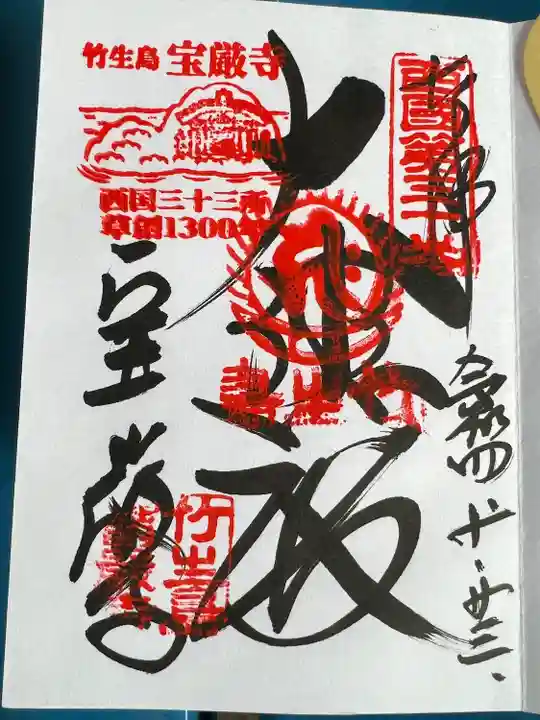 奉拝
西國第三十番
令和四 十・廿三、
大悲殿
竹生島
宝厳寺
竹生島 宝厳寺
西国三十三所
草創1300年